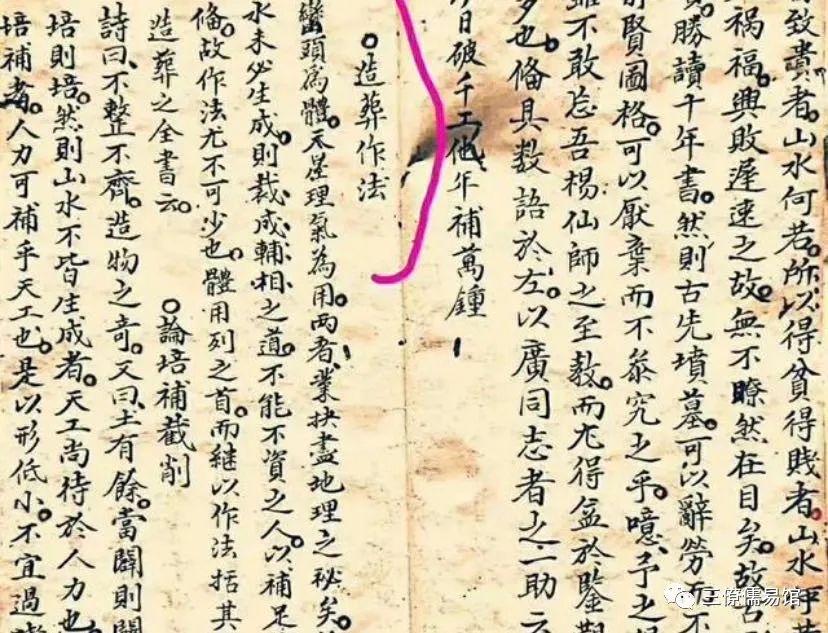 致貴者。山水何若。所以得貧得賤者。山水
禍福。興敗遲速之故。無不瞭然在目矣。故
勝讀千年書。然則古先墳墓。可以辭勞而不
前賢圖格。可以厭棄而不叅究之乎。噫。予之
不敢忘吾楊仙師之至教。而尤得益於鑒
多也。俻具数語於左。以廣同志者之一助云
日破千工他年補萬鍾
○造葬作法
巒頭為體。天星理氣為用。兩者業抉盡地理之秘矣。
水未必生成。則裁成輔相之道。不能不資之人以補足
俻。故作法尤不可少也。體用列之首。而継以作法括其
造葬之全書云。
○論培補截削
詩曰。不整不齊。造物之奇。又曰。土有餘。當闢則闢
培則培。然則山水不皆生成者。天工尚待於人力也
培補者。人力可補乎天工也。是以形低小。不宜過
三僚儒易馆